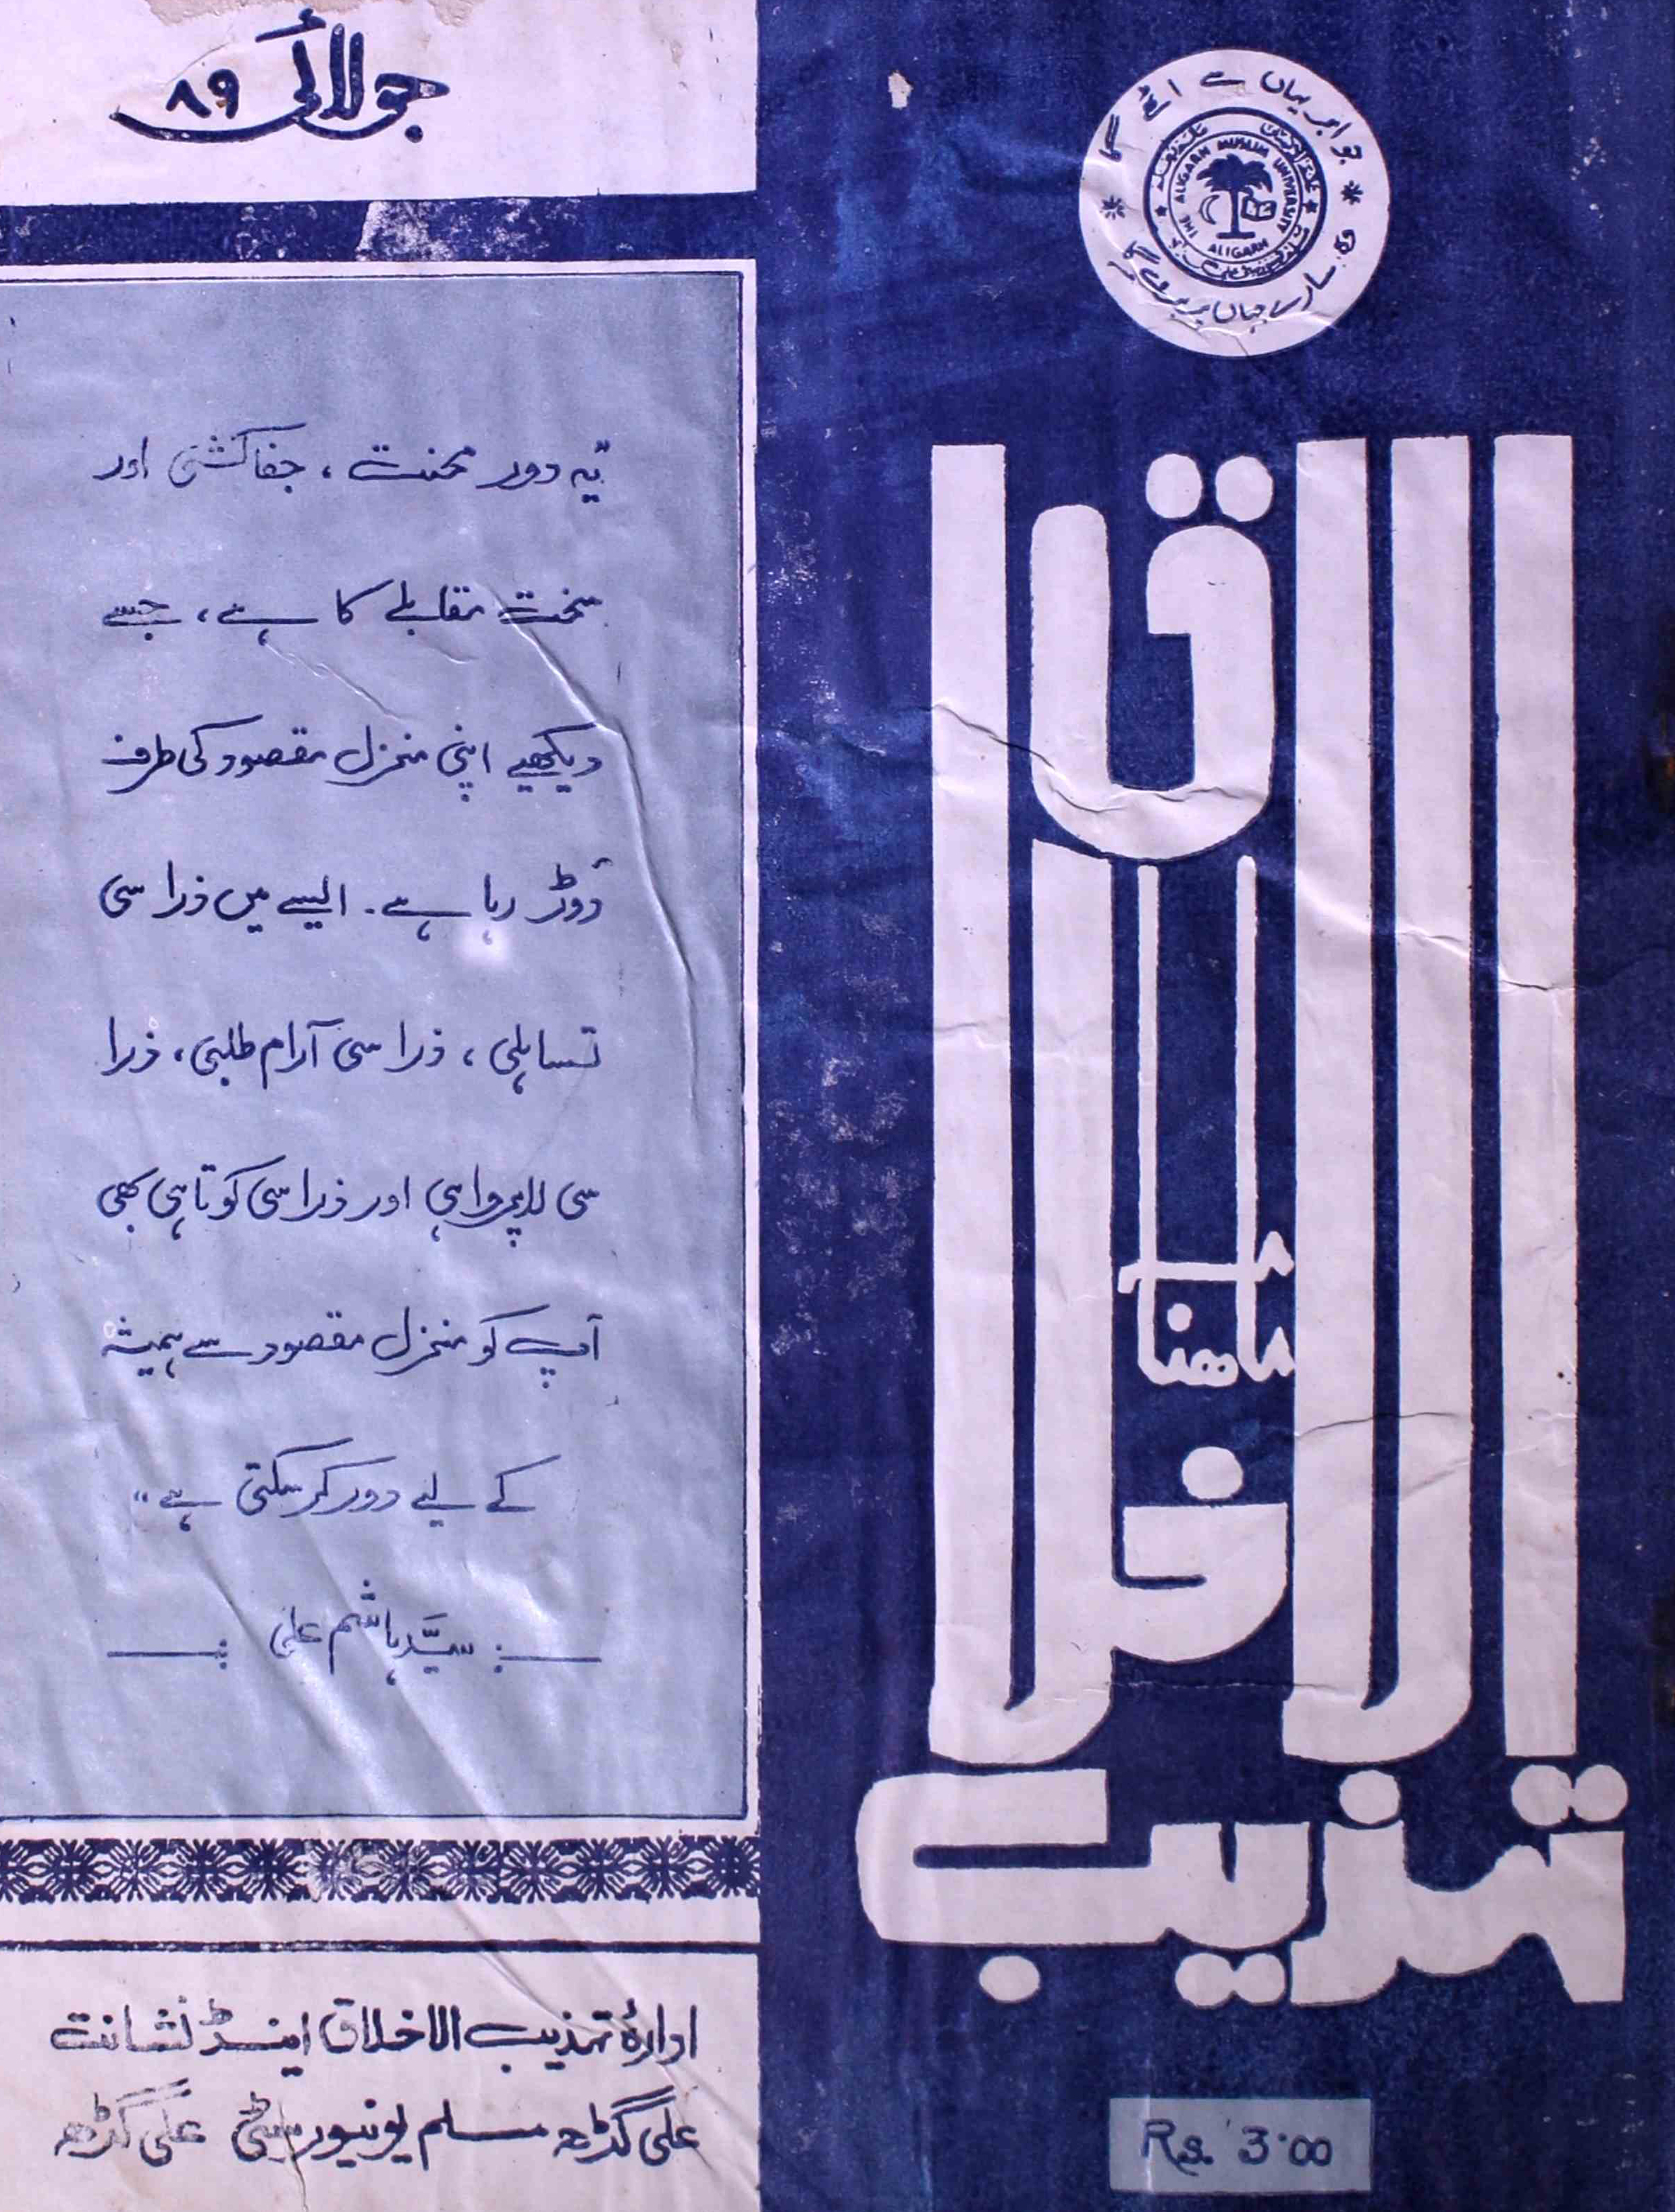 جولائی ۸۹
جو ابر یہاں سے اٹھے گا
وہ سارے جہاں پر برسے گا
THE ALIGARH MUSLIM UNIVERSITY
ALIGARH
ماهنامہ
تہذیب
الاخلاق
یہ دور محنت ، جفاکشی اور
سخت مقابلے کا ہے، جسے
دیکھیے اپنی منزل مقصود کی طرف
دوڑ رہا ہے. ایسے میں ذرا سی
تساہلی ، ذرا سی آرام طلبی، ذرا
سی لاپرواہی اور ذرا سی کوتاہی بھی
آپ کو منزل مقصود سے ہمیشہ
کے لیے دور کر سکتی ہے"
سیّد ہاشم علی
ادارۂ تہذیب الاخلاق اینڈ نشانت
علی گڑھ مسلم یونیورسٹی علی گڑھ
Rs. 3.00